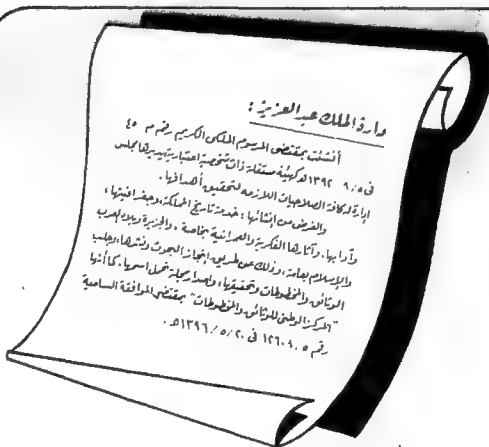 دارة الملك عبد العزيز :
أنشئت بمقتضى المرسوم الملكي الكريم رقم م ٤٥
في ٩/٥ / ١٣٩٢ هـ كهيئة مستقلة ذات شخصية اعتبارية يديرها مجلس
إدارة له كافة الصلاحيات اللازمة لتحقيق أهدافها .
والغرض من إنشائها : خدمة تاريخ المملكة، وجغرافيتها ،
وآدابها، وآثارها الفكرية والعمرانية بخاصة ، والجزيرة وبلاد العرب
والإسلام بعامة، وذلك عن طريق إنجاز البحوث ونشرها، وجلب
الوثائق والمخطوطات وتحقيقها، وإصدار مجلة تحمل اسمها . كما أنها
"المركز الوطني للوثائق والمخطوطات" بمقتضى الموافقة السامية
رقم ٥/ ١٢٦٠٨ في ٢٠/ ٥ / ١٣٩٦هـ .